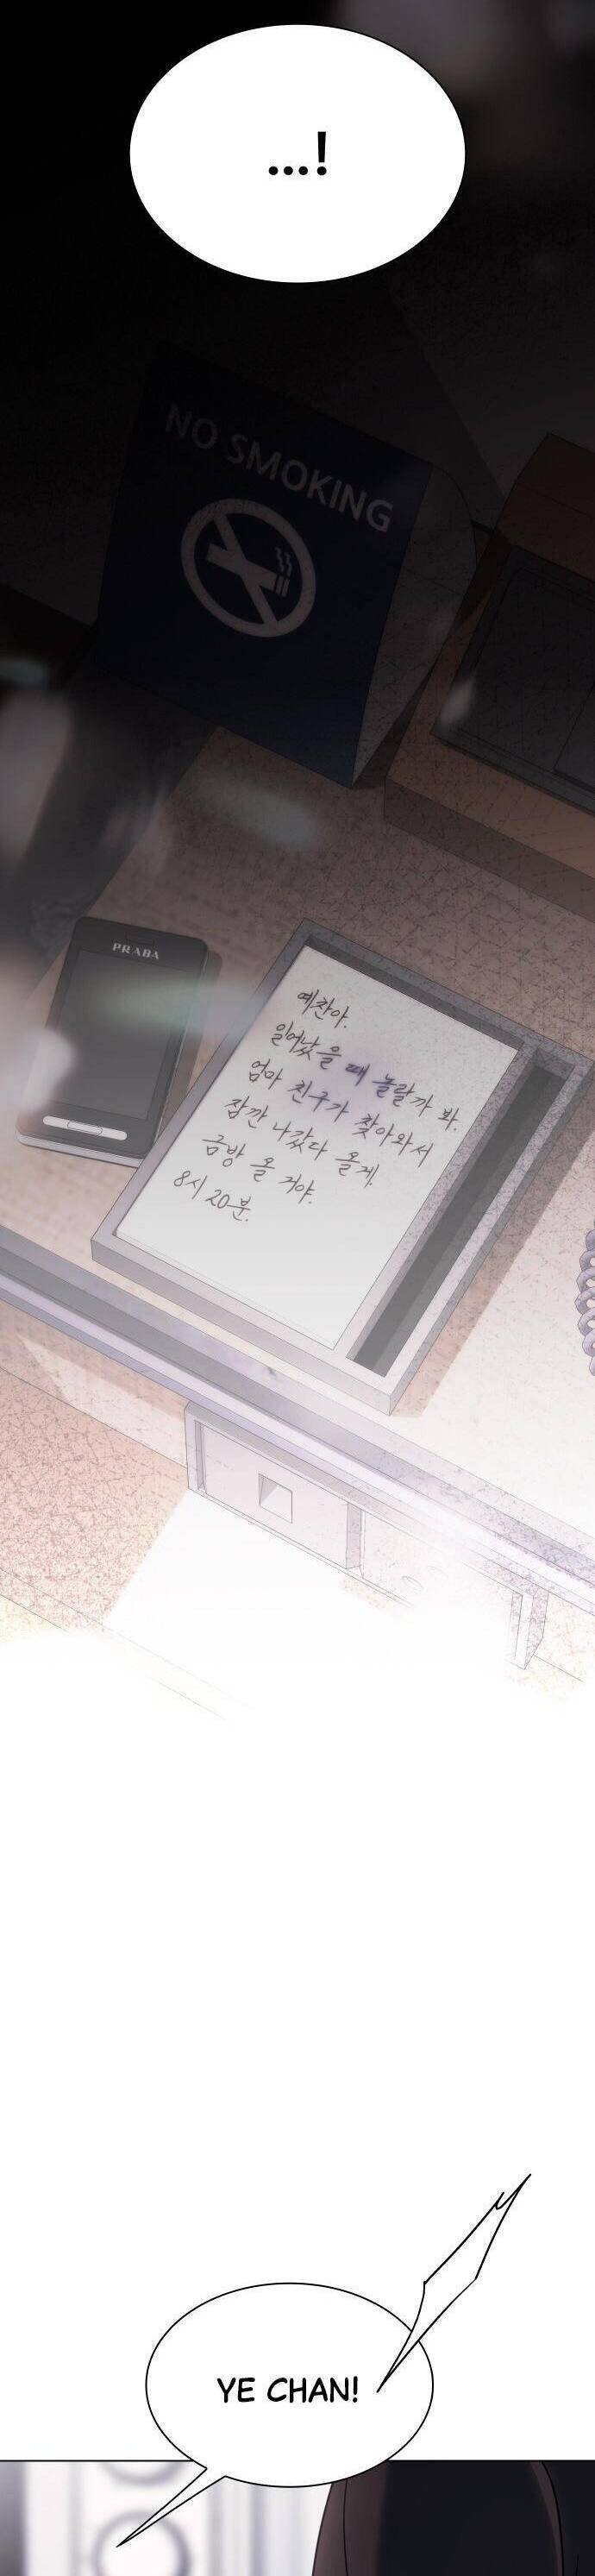 ...!
NO SMOKING
PRABA
예찬아.
일어났을 때 놀랄까 봐.
엄마 친구가 찾아와서
잠깐 나갔다 올게.
금방 올 거야.
8시 20분.
YE CHAN!